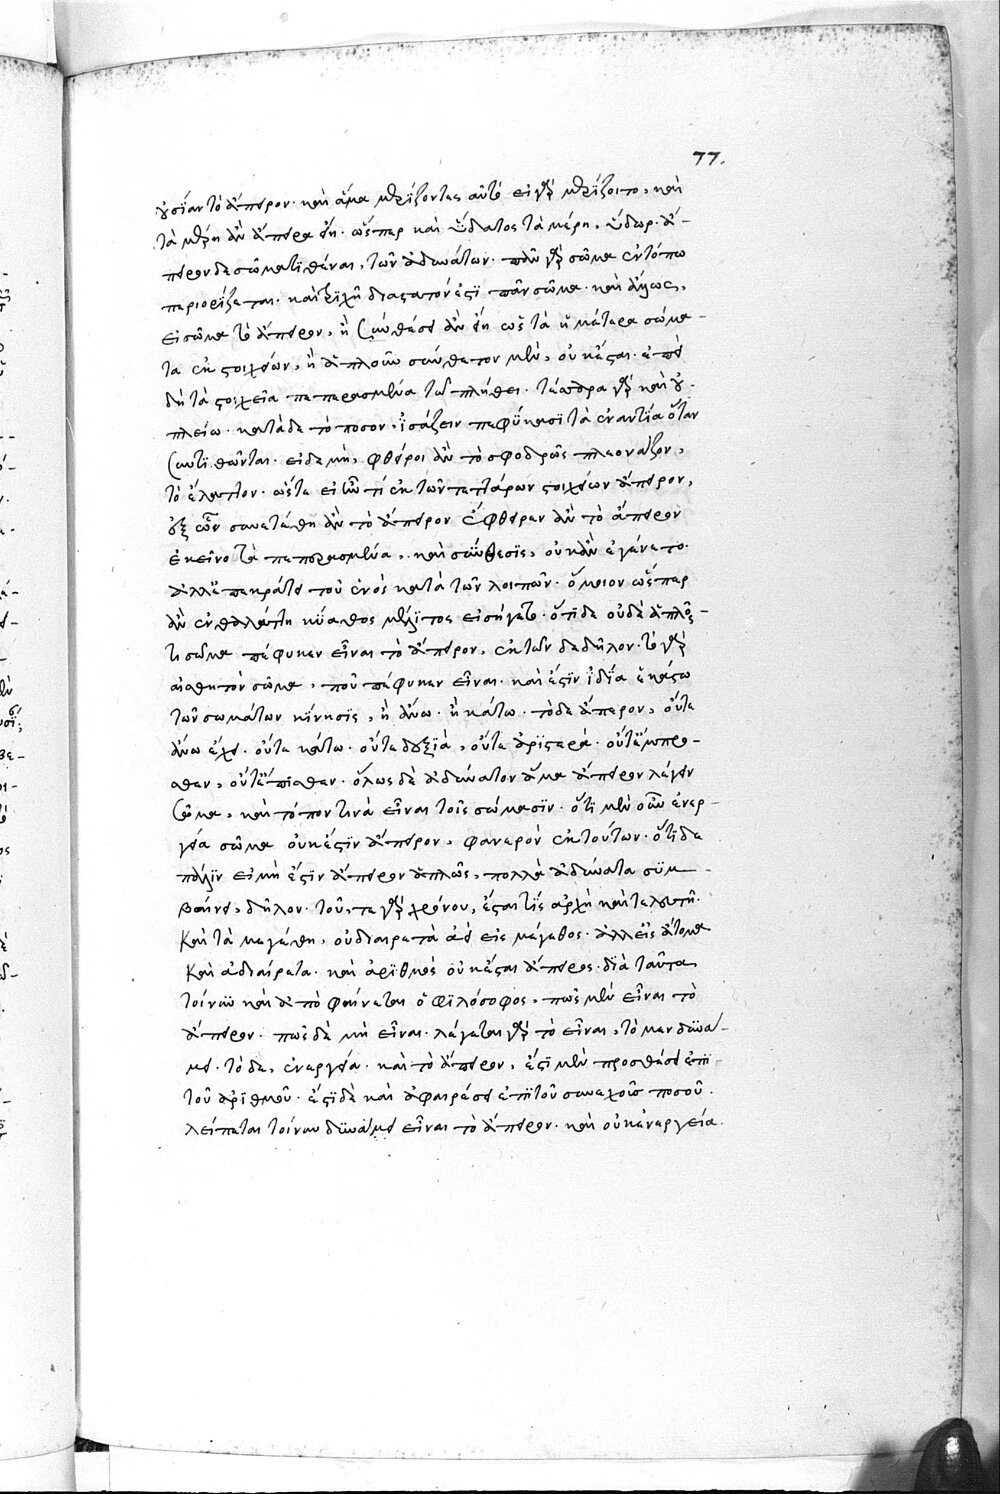 77.
οὐσίαν τὸ ἄπειρον· καὶ ἅμα μερίζοντες αὐτό· εἰ γὰρ μερίζοιτο, καὶ
τὰ μέρη ἂν ἄπειρα εἴη· ὥσπερ καὶ ὕδατος τὰ μέρη, ὕδωρ· ἄ-
πειρον δὲ σῶμα τιθέναι, τῶν ἀδυνάτων· πᾶν γὰρ σῶμα ἐν τόπω
περιορίζεται· καὶ τριχῆ διαστατόν ἐστι πᾶν σῶμα· καὶ ἄλλως,
εἰ σῶμα τὸ ἄπειρον, ἢ συνθέσει ἂν εἴη ὡς τὰ ἡμέτερα σώμα-
τα ἐκ στοιχείων, ἢ ἁπλοῦν σύνθετον μὲν, οὐκ ἔσται· ἐπεὶ
δὴ τὰ στοιχεῖα πεπερασμένα τῶ πλήθει· τέσσαρα γὰρ καὶ οὐ
πλείω· κατὰ δὲ τὸ ποσὸν, ἰσάζειν πεφύκασι τὰ ἐναντία ὅταν
συντιθῶνται· εἰ δὲ μὴ, φθείροι ἂν τὸ σφοδρῶς πλεονάζον,
τὸ ἔλαττον· ὥστε εἰ ἦν τι ἐκ τῶν τεττάρων στοιχείων ἄπειρον,
ἐξ ὧν συνετέθη ἂν τὸ ἄπειρον ἔφθειρεν ἂν τὸ ἄπειρον
ἐκεῖνο τὰ πεπερασμένα, καὶ σύνθεσις, οὐκ ἂν ἐγένετο·
ἀλλ' ἐπεκράτει τοῦ ἑνὸς κατὰ τῶν λοιπῶν· ὅμοιον ὥσπερ
ἂν ἐν θαλάττη κύαθος μέλιτος εἰσήγετο· ὅτι δὲ οὐδὲ ἁπλοῦν
τι σῶμα πέφυκεν εἶναι τὸ ἄπειρον, ἐκ τῶνδε δῆλον· τὸ γὰρ
αἰσθητὸν σῶμα, ποῦ πέφυκεν εἶναι· καὶ ἔστιν ἰδία ἑκάστω
τῶν σωμάτων κίνησις, ἢ ἄνω· ἢ κάτω· τὸ δὲ ἄπειρον, οὔτε
ἄνω ἔχει· οὔτε κάτω· οὔτε δεξιὰ, οὔτε ἀριστερά· οὔτε ἔμπρο-
σθεν, οὔτε ὄπισθεν· ὅλως δὲ ἀδύνατον ἅμα ἄπειρον λέγειν
σῶμα, καὶ τόπον τινὰ εἶναι τοῖς σώμασιν· ὅτι μὲν οὖν ἐνερ-
γεία σῶμα οὐκ ἔστιν ἄπειρον, φανερὸν ἐκ τούτων· ὅτι δὲ
πάλιν εἰ μὴ ἔστιν ἄπειρον ἁπλῶς, πολλὰ ἀδύνατα συμ-
βαίνει, δῆλον· τοῦ, τε γὰρ χρόνου, ἔσται τὶς ἀρχὴ καὶ τελευτή·
καὶ τὰ μεγέθη, οὐ διαιρετὰ ἀεὶ εἰς μέγεθος· ἀλλ' εἰς ἄτομα
καὶ ἀδιαίρετα· καὶ ἀριθμὸς οὐκ ἔσται ἄπειρος· διὰ ταῦτα
τοίνυν καὶ ἀποφαίνεται ὁ φιλόσοφος, πῶς μὲν εἶναι τὸ
ἄπειρον· πῶς δὲ μὴ εἶναι· λέγεται γὰρ τὸ εἶναι, τὸ μὲν δυνά-
μει· τὸ δὲ, ἐνεργεία· καὶ τὸ ἄπειρον, ἔστι μὲν προσθέσει ἐπὶ
τοῦ ἀριθμοῦ· ἔστι δὲ καὶ ἀφαιρέσει ἐπὶ τοῦ συνεχοῦς ποσοῦ·
λείπεται τοίνυν δυνάμει εἶναι τὸ ἄπειρον· καὶ οὐκ ἐνεργεία.